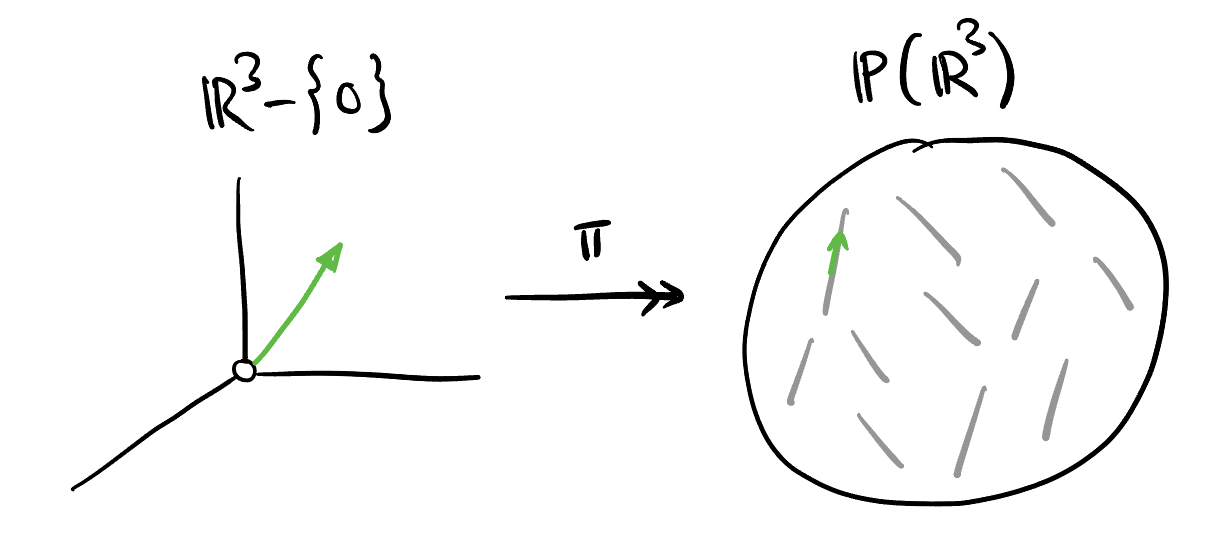 ℝ³-{0}
ℙ(ℝ³)
π